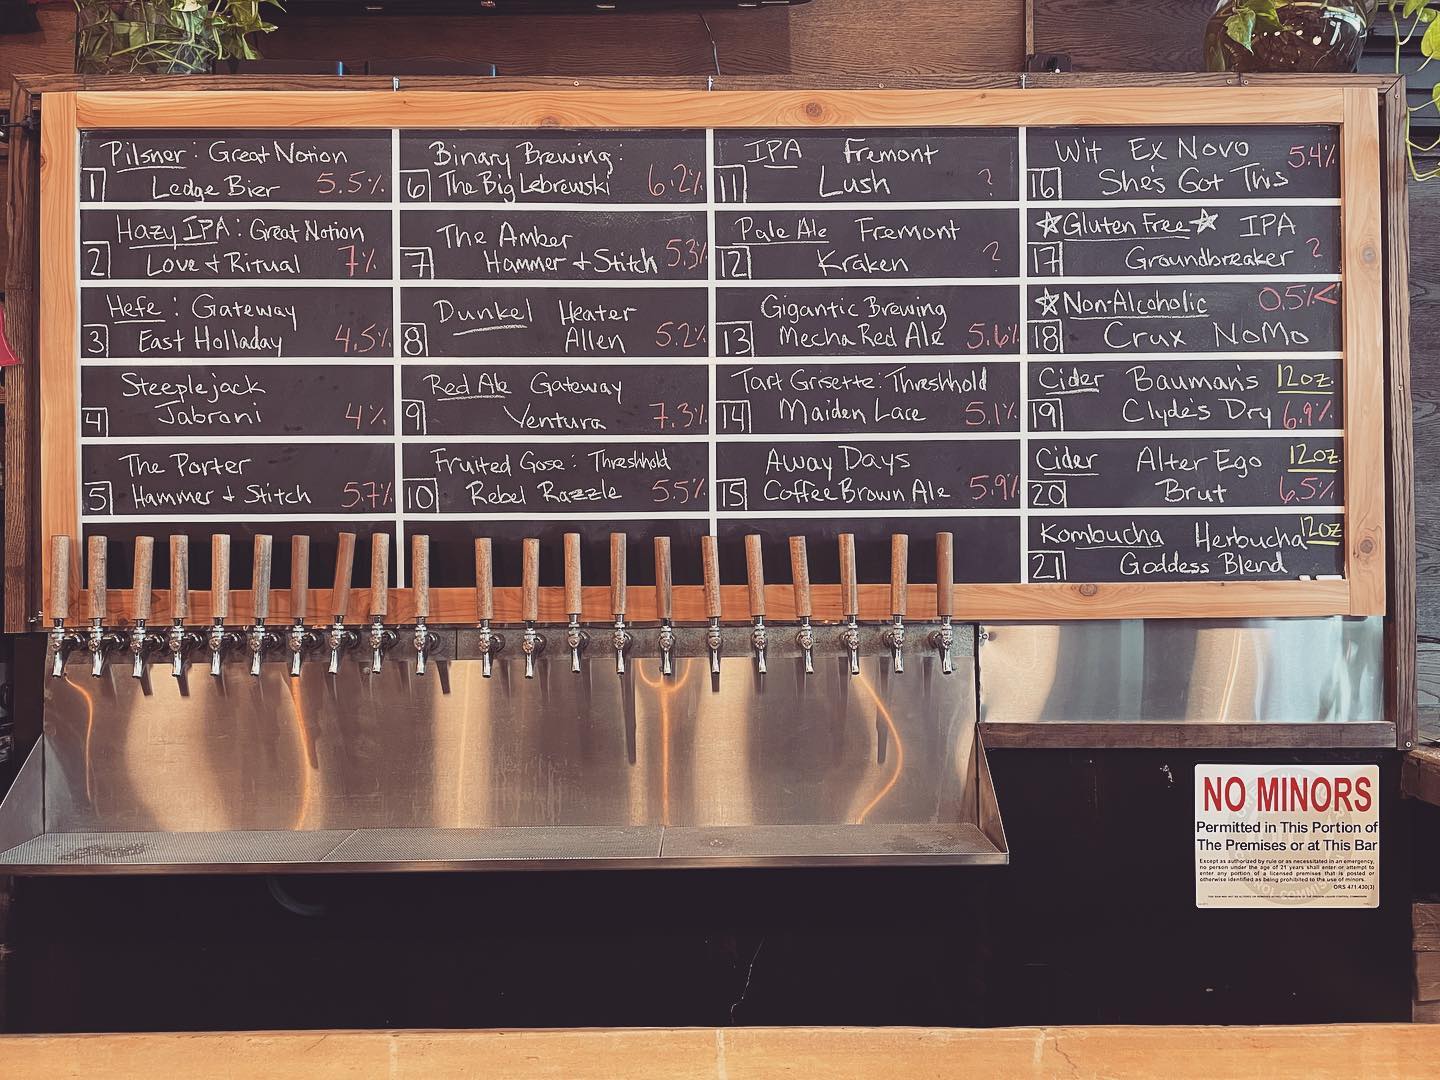 Pilsner: Great Notion
1 Ledge Bier 5.5%
Hazy IPA: Great Notion
2 Love + Ritual 7%
Hefe: Gateway
3 East Holladay 4.5%
Steeplejack
4 Jabrani 4%
The Porter
5 Hammer + Stitch 5.7%
Binary Brewing:
6 The Big Lebrewski 6.2%
The Amber
7 Hammer + Stitch 5.3%
Dunkel Heater
8 Allen 5.2%
Red Ale Gateway
9 Ventura 7.3%
Fruited Gose: Threshhold
10 Rebel Razzle 5.5%
IPA Fremont
11 Lush ?
Pale Ale Fremont
12 Kraken ?
Gigantic Brewing
13 Mecha Red Ale 5.6%
Tart Grisette: Threshhold
14 Maiden Lace 5.1%
Away Days
15 Coffee Brown Ale 5.9%
Wit Ex Novo 5.4%
16 She's Got This
☆Gluten Free☆ IPA
17 Groundbreaker ?
☆Non-Alcoholic 0.5%<
18 Crux NoMo
Cider Bauman's 12oz.
19 Clyde's Dry 6.9%
Cider Alter Ego 12oz.
20 Brut 6.5%
Kombucha Herbucha 12oz
21 Goddess Blend
NO MINORS
Permitted in This Portion of
The Premises or at This Bar
Except as authorized by rule or as necessitated in an emergency,
no person under the age of 21 years shall enter or attempt to
enter any portion of a licensed premises that is posted or
otherwise identified as being prohibited to the use of minors.
ORS 471.430(3)